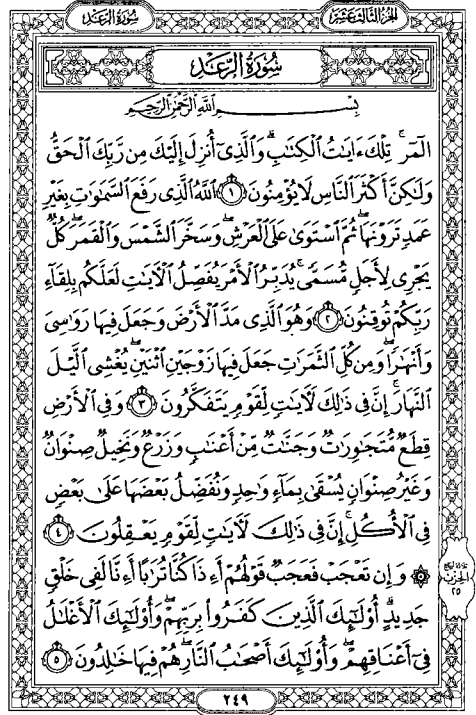 الجزء الثالث عشر
سورة الرعد
سُورَةُ الرَّعْدِ
بِسْمِ اللَّهِ الرَّحْمَٰنِ الرَّحِيمِ
الٓمٓر ۚ تِلْكَ ءَايَٰتُ الْكِتَٰبِ ۗ وَالَّذِىٓ أُنزِلَ إِلَيْكَ مِن رَّبِّكَ الْحَقُّ
وَلَٰكِنَّ أَكْثَرَ النَّاسِ لَا يُؤْمِنُونَ ١ اللَّهُ الَّذِى رَفَعَ السَّمَٰوَٰتِ بِغَيْرِ
عَمَدٍ تَرَوْنَهَا ۖ ثُمَّ اسْتَوَىٰ عَلَى الْعَرْشِ ۖ وَسَخَّرَ الشَّمْسَ وَالْقَمَرَ ۖ كُلٌّ
يَجْرِى لِأَجَلٍ مُّسَمًّى ۚ يُدَبِّرُ الْأَمْرَ يُفَصِّلُ الْءَايَٰتِ لَعَلَّكُم بِلِقَآءِ
رَبِّكُمْ تُوقِنُونَ ٢ وَهُوَ الَّذِى مَدَّ الْأَرْضَ وَجَعَلَ فِيهَا رَوَٰسِىَ
وَأَنْهَٰرًا ۖ وَمِن كُلِّ الثَّمَرَٰتِ جَعَلَ فِيهَا زَوْجَيْنِ اثْنَيْنِ ۖ يُغْشِى الَّيْلَ
النَّهَارَ ۚ إِنَّ فِى ذَٰلِكَ لَءَايَٰتٍ لِّقَوْمٍ يَتَفَكَّرُونَ ٣ وَفِى الْأَرْضِ
قِطَعٌ مُّتَجَٰوِرَٰتٌ وَجَنَّٰتٌ مِّنْ أَعْنَٰبٍ وَزَرْعٌ وَنَخِيلٌ صِنْوَانٌ
وَغَيْرُ صِنْوَانٍ يُسْقَىٰ بِمَآءٍ وَٰحِدٍ وَنُفَضِّلُ بَعْضَهَا عَلَىٰ بَعْضٍ
فِى الْأُكُلِ ۚ إِنَّ فِى ذَٰلِكَ لَءَايَٰتٍ لِّقَوْمٍ يَعْقِلُونَ ٤
۞ وَإِن تَعْجَبْ فَعَجَبٌ قَوْلُهُمْ أَءِذَا كُنَّا تُرَٰبًا أَءِنَّا لَفِى خَلْقٍ
جَدِيدٍ ۗ أُو۟لَٰٓئِكَ الَّذِينَ كَفَرُوا۟ بِرَبِّهِمْ ۖ وَأُو۟لَٰٓئِكَ الْأَغْلَٰلُ
فِىٓ أَعْنَاقِهِمْ ۖ وَأُو۟لَٰٓئِكَ أَصْحَٰبُ النَّارِ ۖ هُمْ فِيهَا خَٰلِدُونَ ٥
الحزب
٢٥
٢٤٩